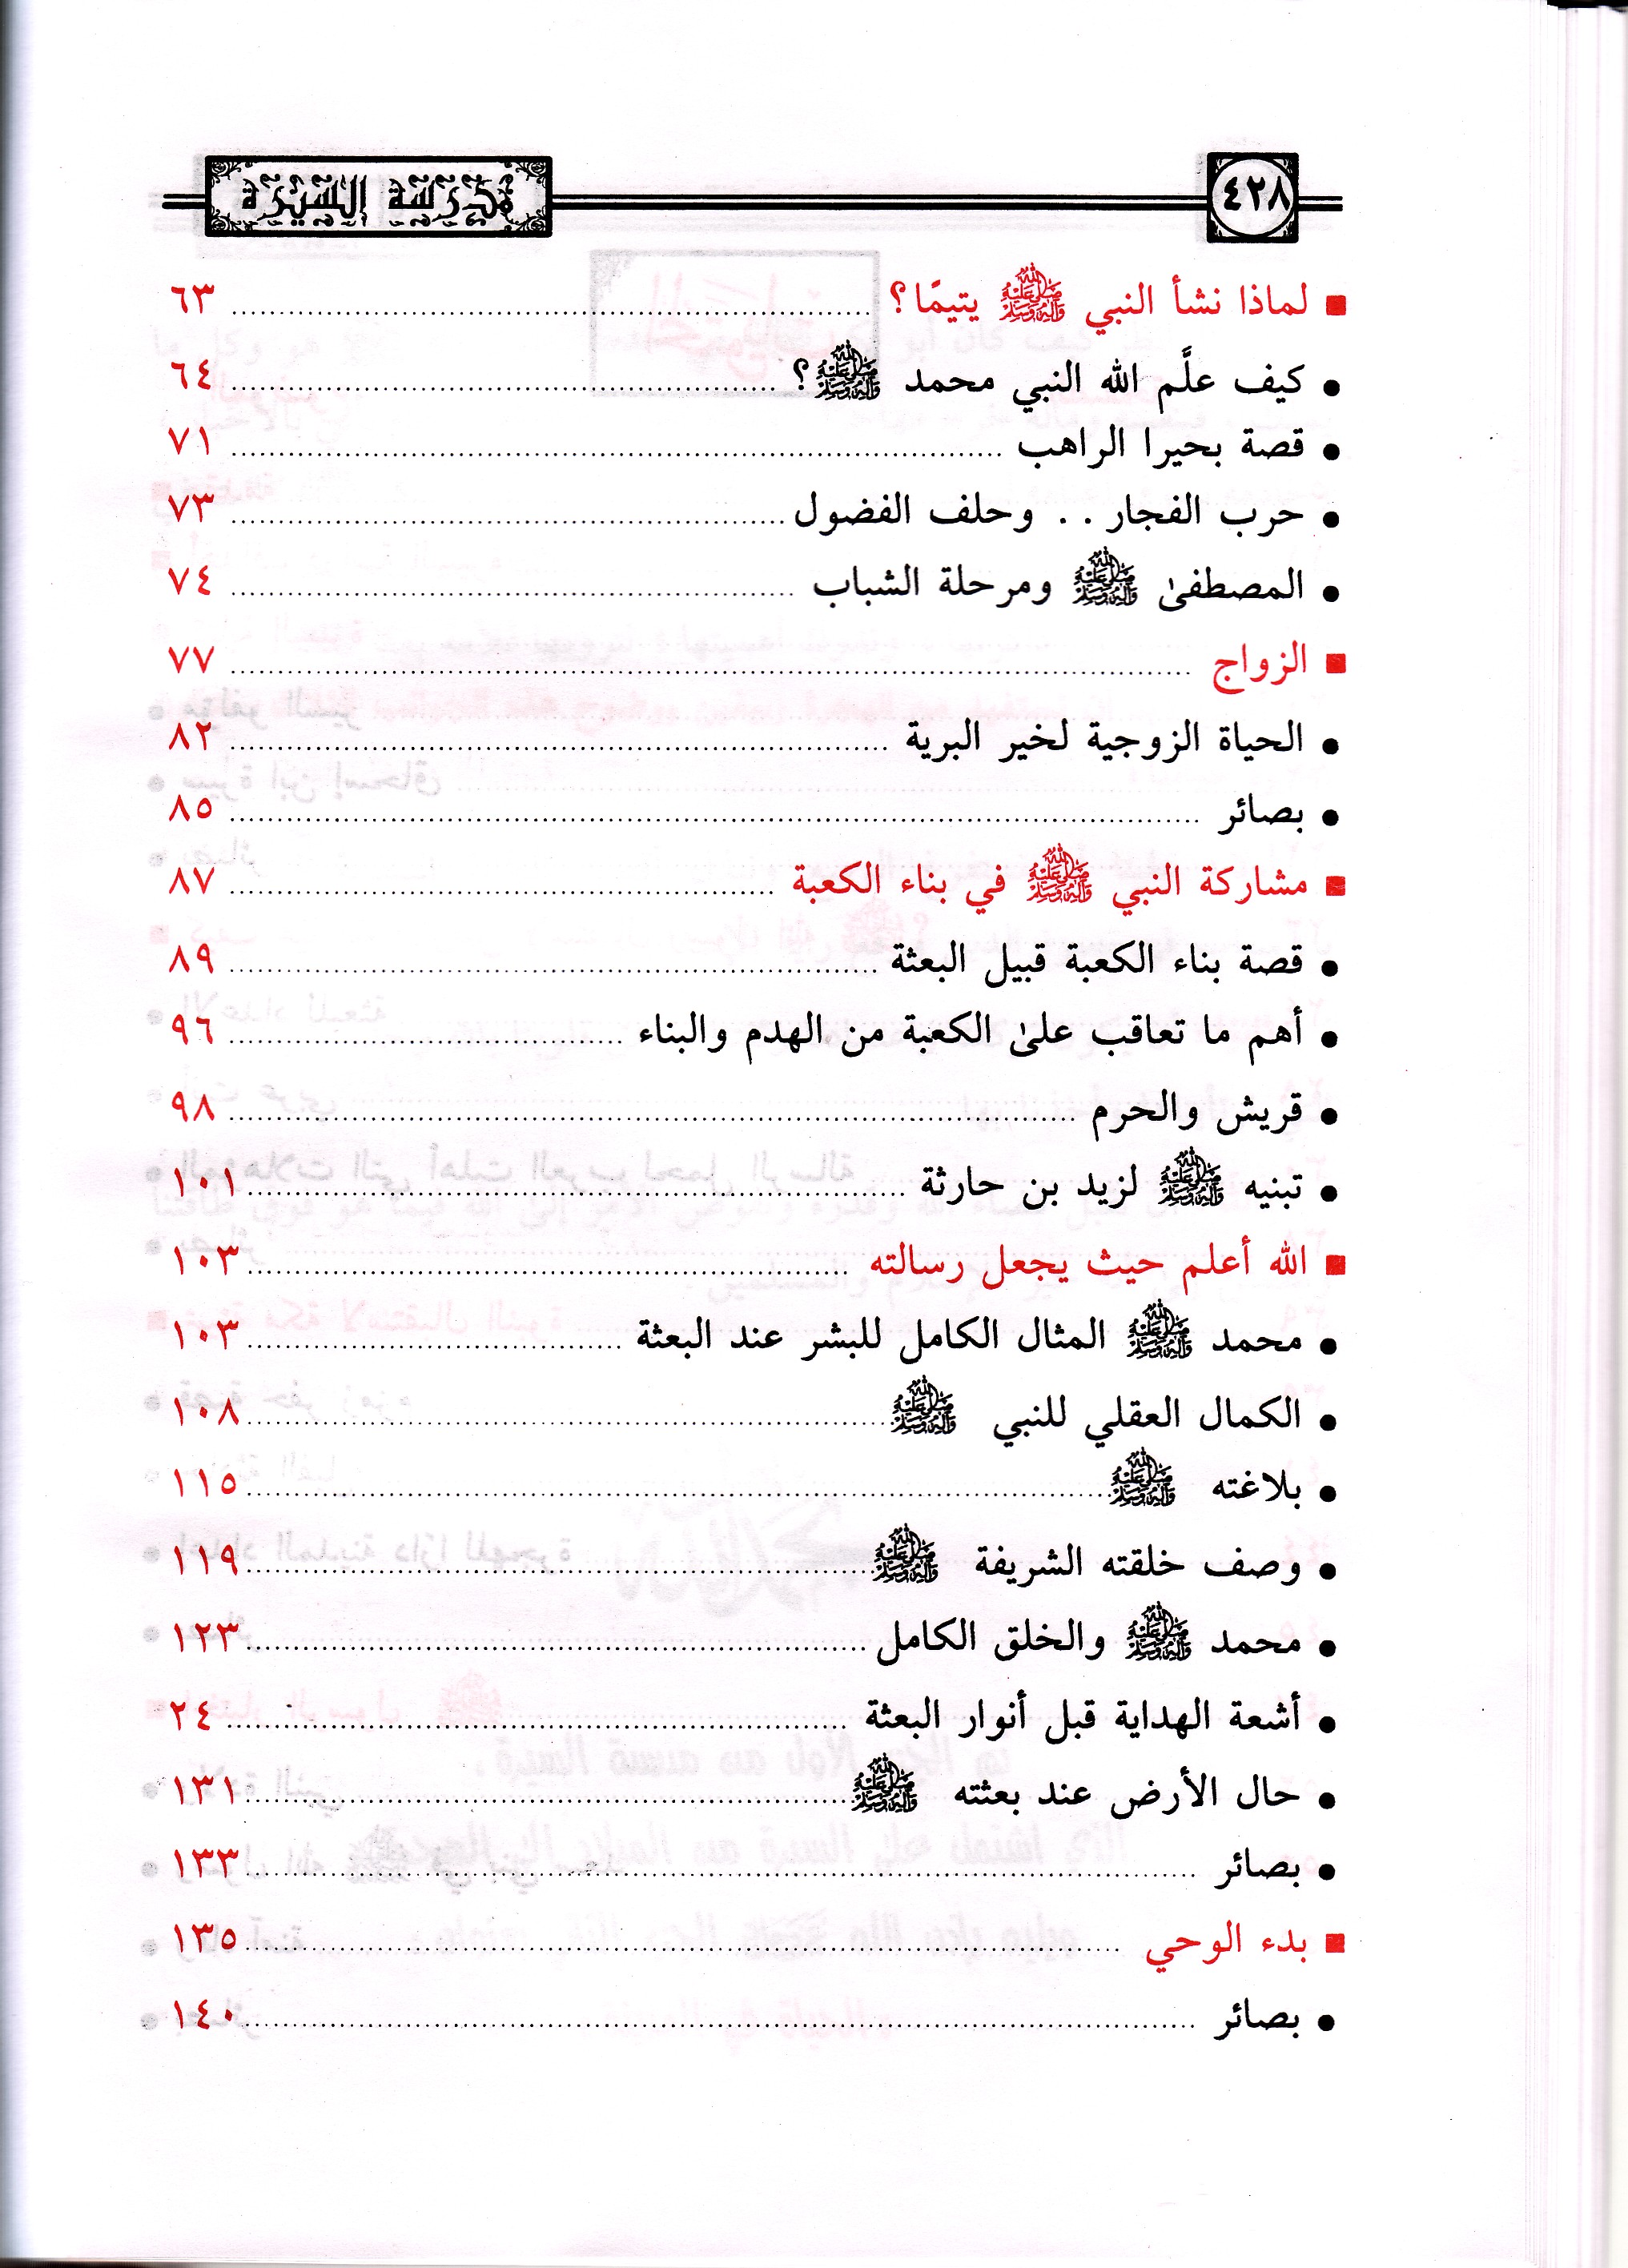 ٤٢٨
مدرسة السيرة
لماذا نشأ النبي ﷺ يتيمًا؟ ٦٣
كيف علَّم الله النبي محمد ﷺ؟ ٦٤
قصة بحيرا الراهب ٧١
حرب الفجار . . وحلف الفضول ٧٣
المصطفىٰ ﷺ ومرحلة الشباب ٧٤
الزواج ٧٧
الحياة الزوجية لخير البرية ٨٢
بصائر ٨٥
مشاركة النبي ﷺ في بناء الكعبة ٨٧
قصة بناء الكعبة قبيل البعثة ٨٩
أهم ما تعاقب علىٰ الكعبة من الهدم والبناء ٩٦
قريش والحرم ٩٨
تبنيه ﷺ لزيد بن حارثة ١٠١
الله أعلم حيث يجعل رسالته ١٠٣
محمد ﷺ المثال الكامل للبشر عند البعثة ١٠٣
الكمال العقلي للنبي ﷺ ١٠٨
بلاغته ﷺ ١١٥
وصف خلقته الشريفة ﷺ ١١٩
محمد ﷺ والخلق الكامل ١٢٣
أشعة الهداية قبل أنوار البعثة ٢٤
حال الأرض عند بعثته ﷺ ١٣١
بصائر ١٣٣
بدء الوحي ١٣٥
بصائر ١٤٠